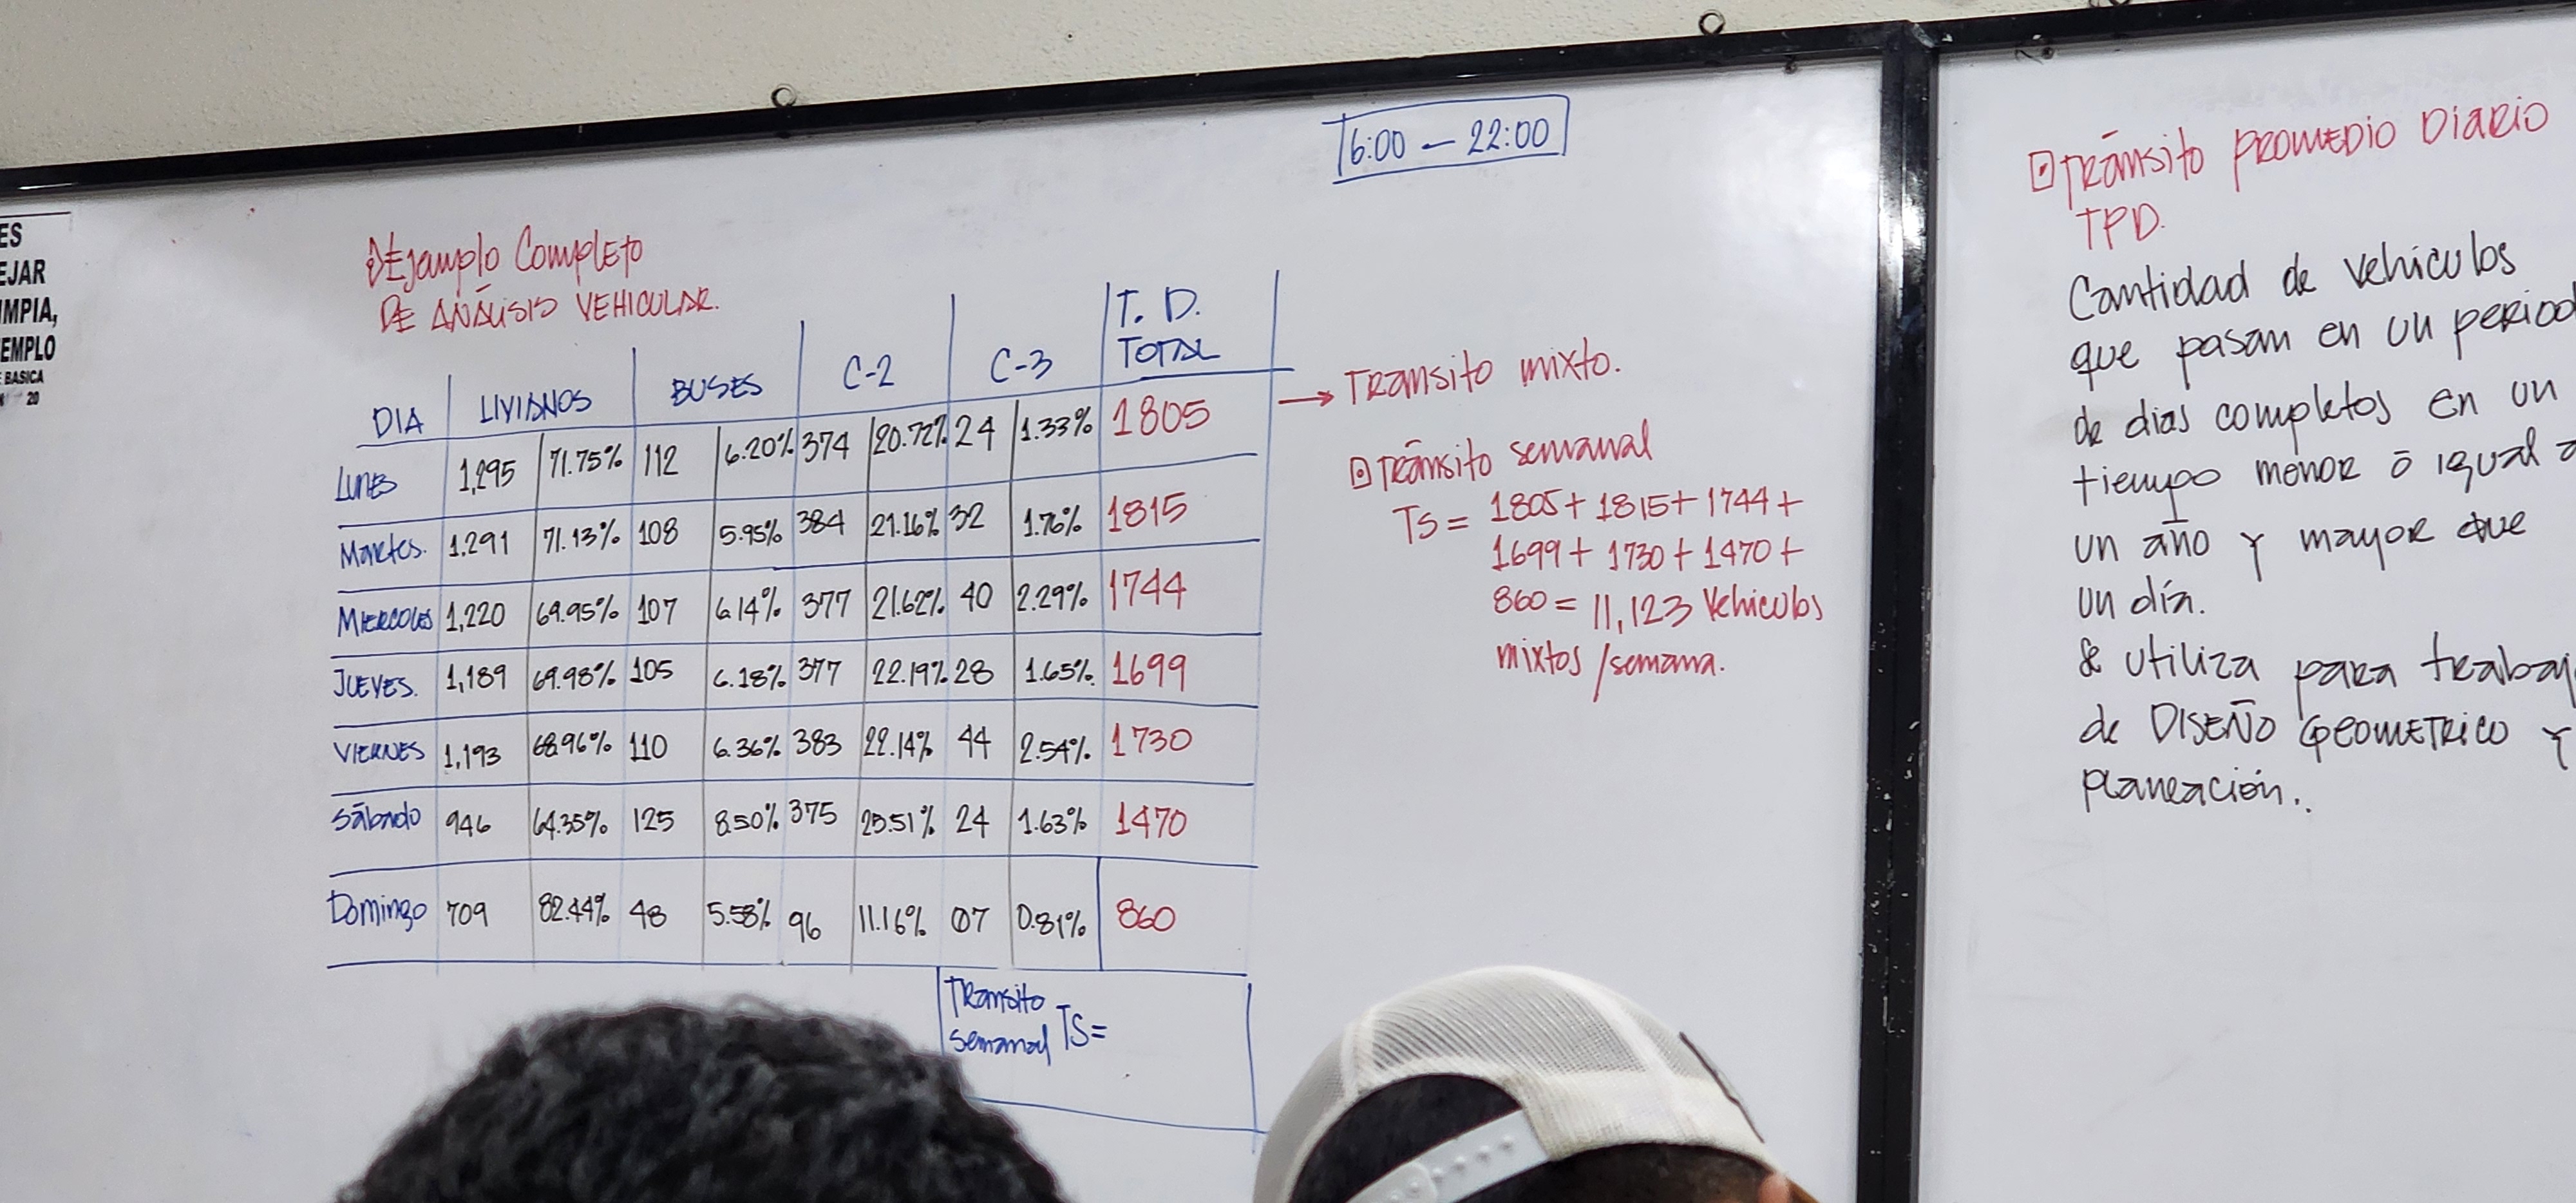 ES
EJAR
IMPIA,
EMPLO
BASICA
20
6:00 – 22:00
Ejemplo Completo
DE ANÁLISIS VEHICULAR.
DIA LIVIANOS BUSES C-2 C-3 T. D. TOTAL
LUNES 1,295 71.75% 112 6.20% 374 20.72% 24 1.33% 1805
Martes. 1,291 71.13% 108 5.95% 384 21.16% 32 1.76% 1815
MIERCOLES 1,220 69.95% 107 6.14% 377 21.62% 40 2.29% 1744
JUEVES. 1,189 69.98% 105 6.18% 377 22.19% 28 1.65% 1699
VIERNES 1,193 68.96% 110 6.36% 383 22.14% 44 2.54% 1730
Sábado 946 64.35% 125 8.50% 375 25.51% 24 1.63% 1470
Domingo 709 82.44% 48 5.58% 96 11.16% 07 0.81% 860
Transito
semanal TS=
→ Transito mixto.
Tránsito semanal
TS = 1805 + 1815 + 1744 +
1699 + 1730 + 1470 +
860 = 11,123 Vehiculos
mixtos / semana.
Tránsito PROMEDIO DIARIO
TPD.
Cantidad de vehiculos
que pasan en un period
de dias completos en un
tiempo menor ó igual a
un año y mayor que
un día.
Se utiliza para trabaj
de DISEÑO GEOMETRICO Y
planeación..